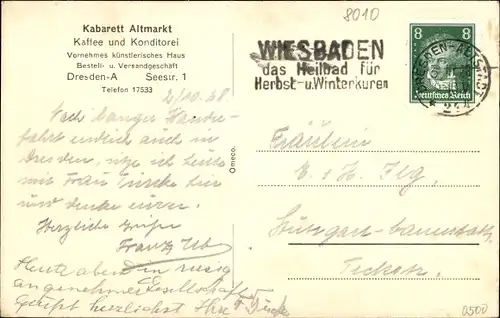 8010
Kabarett Altmarkt
Kaffee und Konditorei
Vornehmes künstlerisches Haus
Bestell- u. Versandgeschäft
Dresden-A Seestr. 1
Telefon 17533
WIESBADEN
das Heilbad für
Herbst- u. Winterkuren
8 8
Deutsches Reich
DRESDEN-ALTST.
24
2/10. 28.
Nach langer
fahrt endlich auch in
Dresden, sitze ich heute
mit Frau hier
und denke
Herzliche Grüße
Franz
Heute abend in riesig
angenehmer Gesellschaft
Grüßt herzlichst Ihre F.
Omeco.
Fräulein
E. + H. Ilg.
Stuttgart-Cannstatt
0500